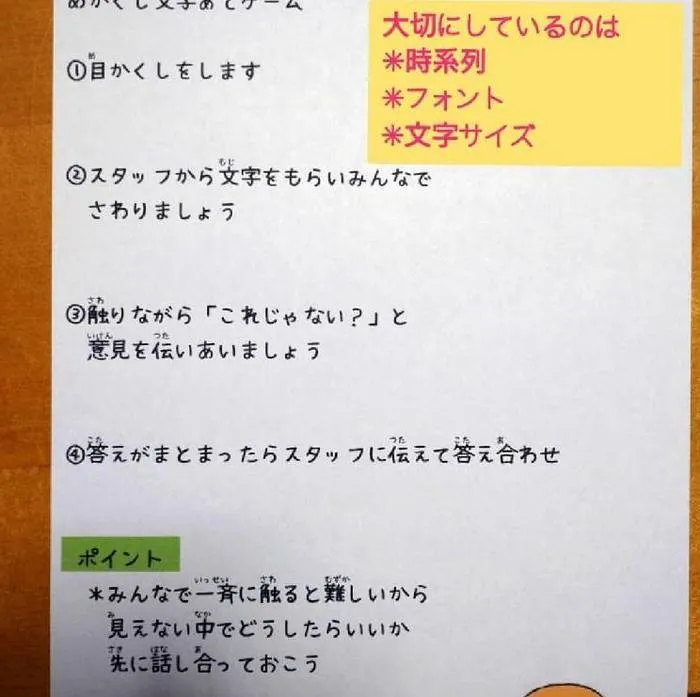 めかくし文字あてゲーム
大切にしているのは
*時系列
*フォント
*文字サイズ
①目かくしをします
②スタッフから文字をもらいみんなで
さわりましょう
③触りながら「これじゃない？」と
意見を伝いあいましょう
④答えがまとまったらスタッフに伝えて答え合わせ
ポイント
*みんなで一斉に触ると難しいから
見えない中でどうしたらいいか
先に話し合っておこう